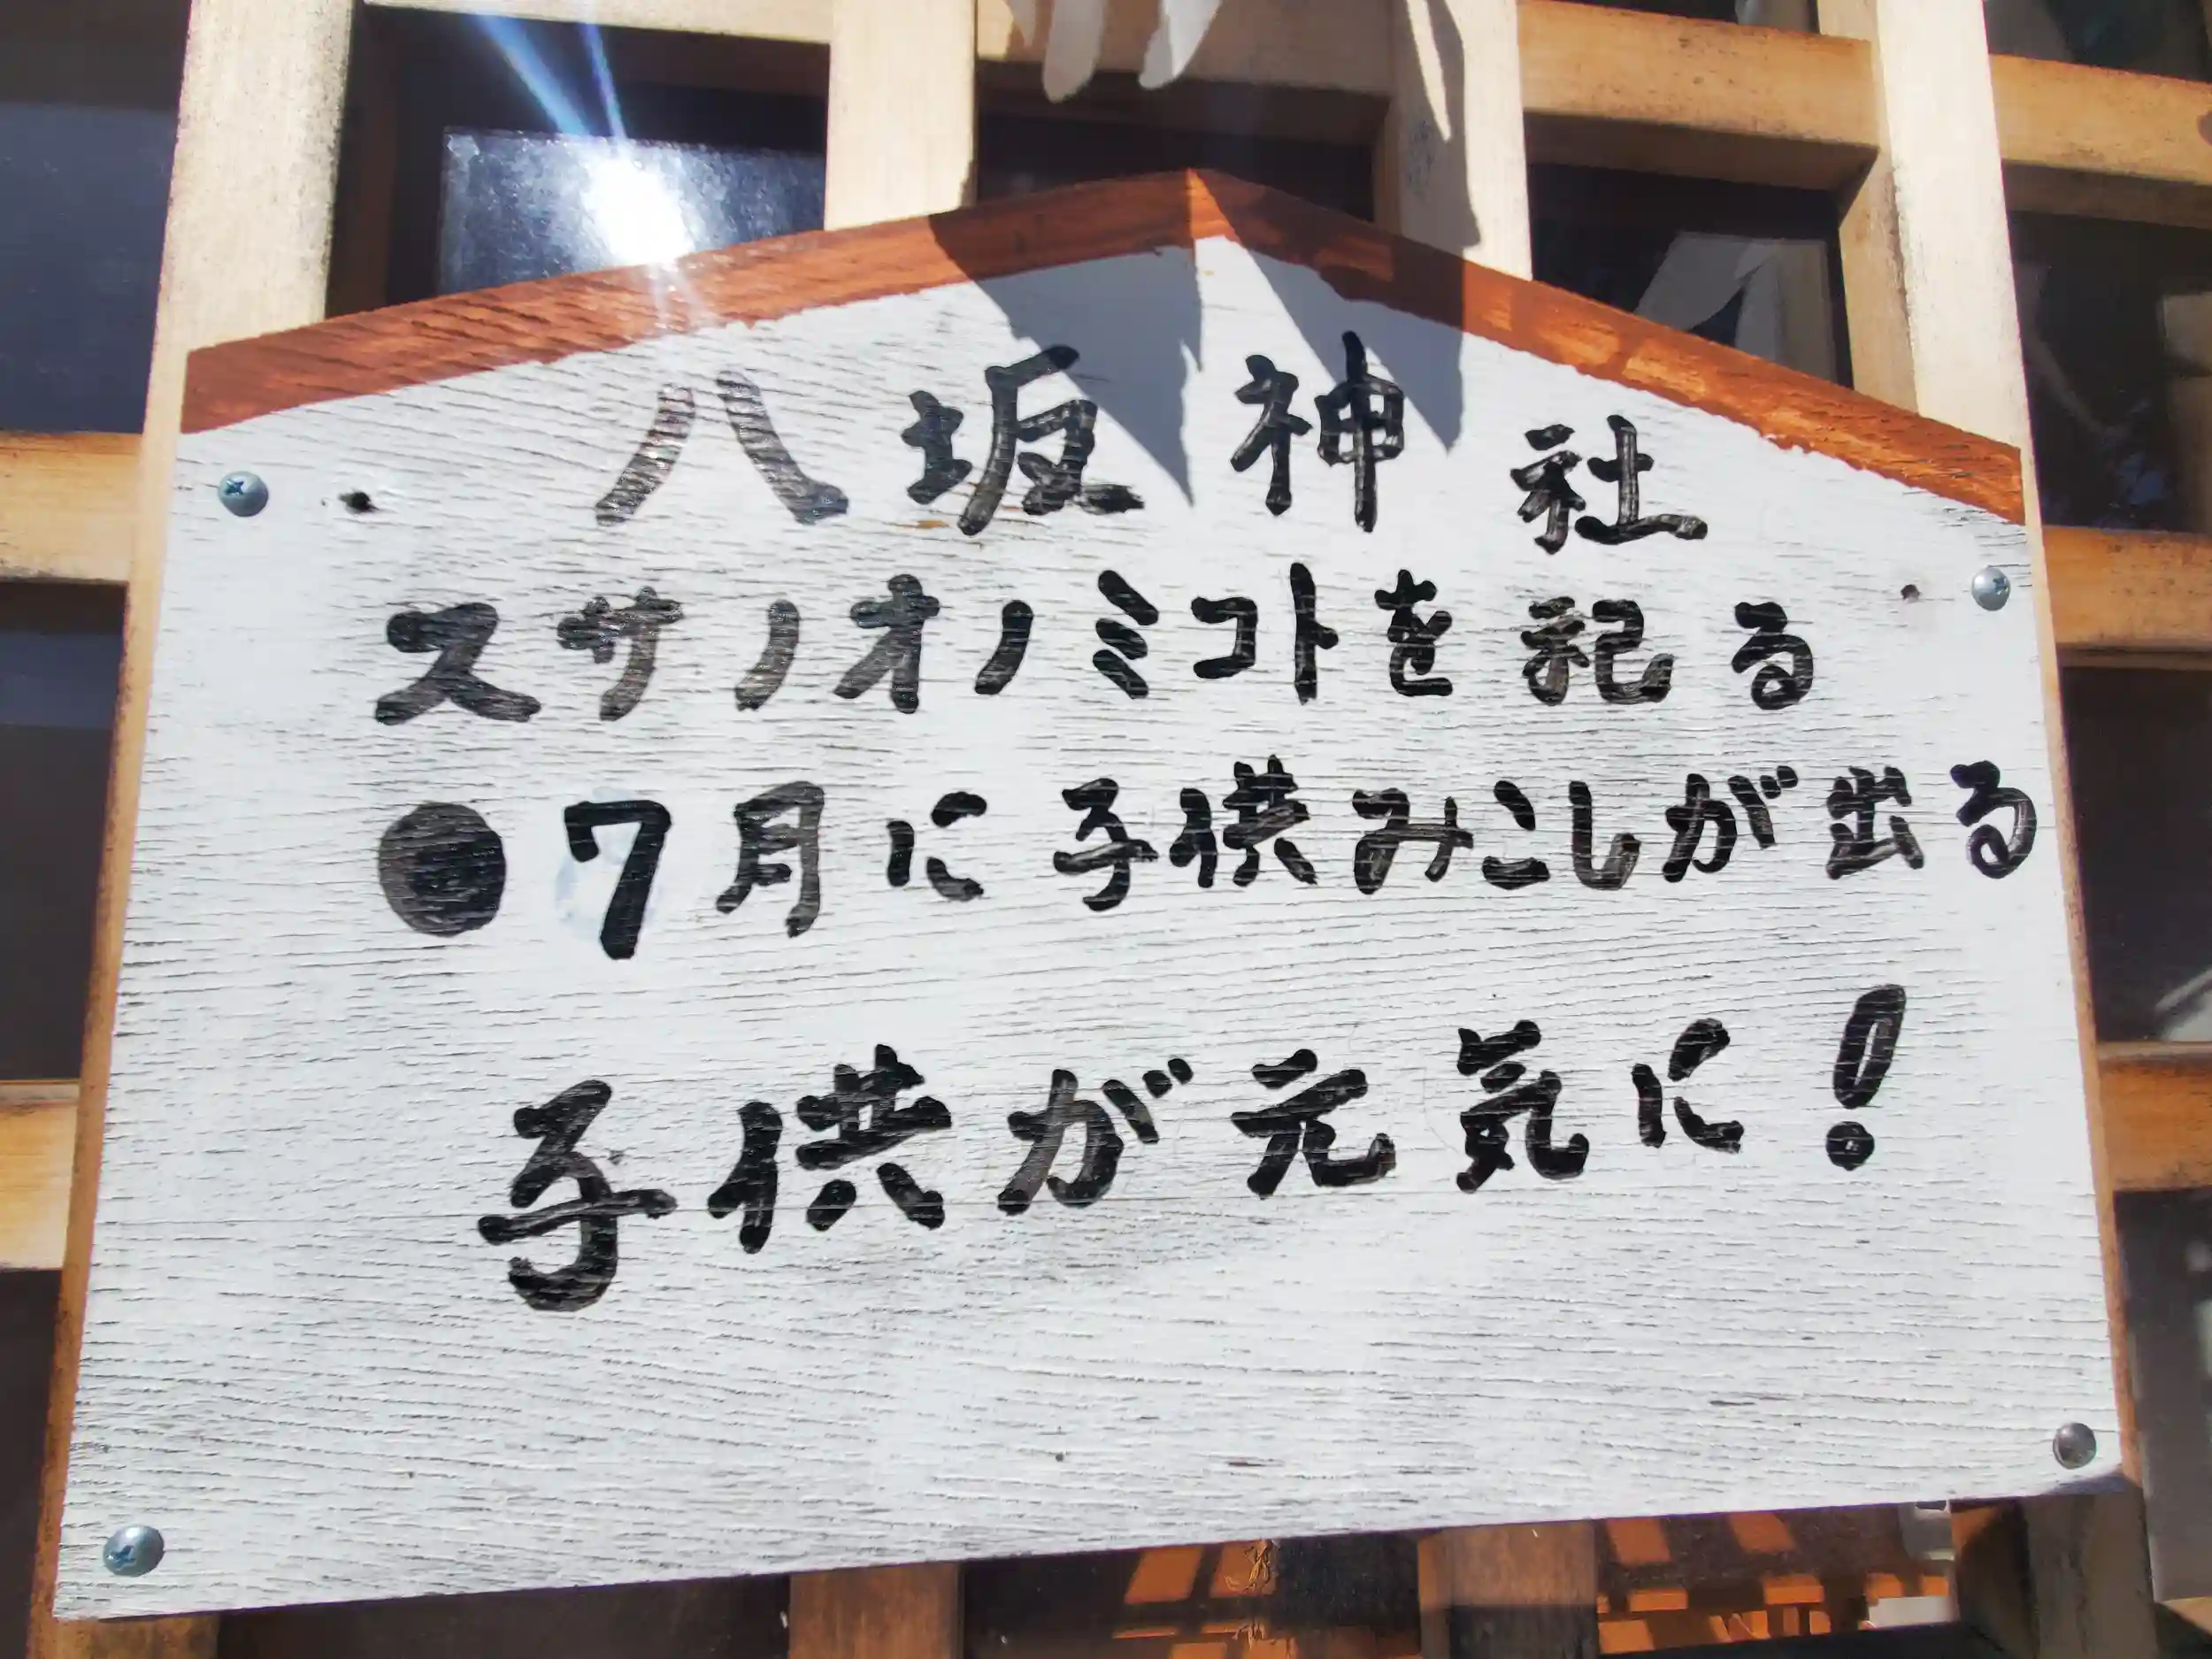 八坂神社
スサノオノミコトを祀る
●7月に子供みこしが出る
子供が元気に!